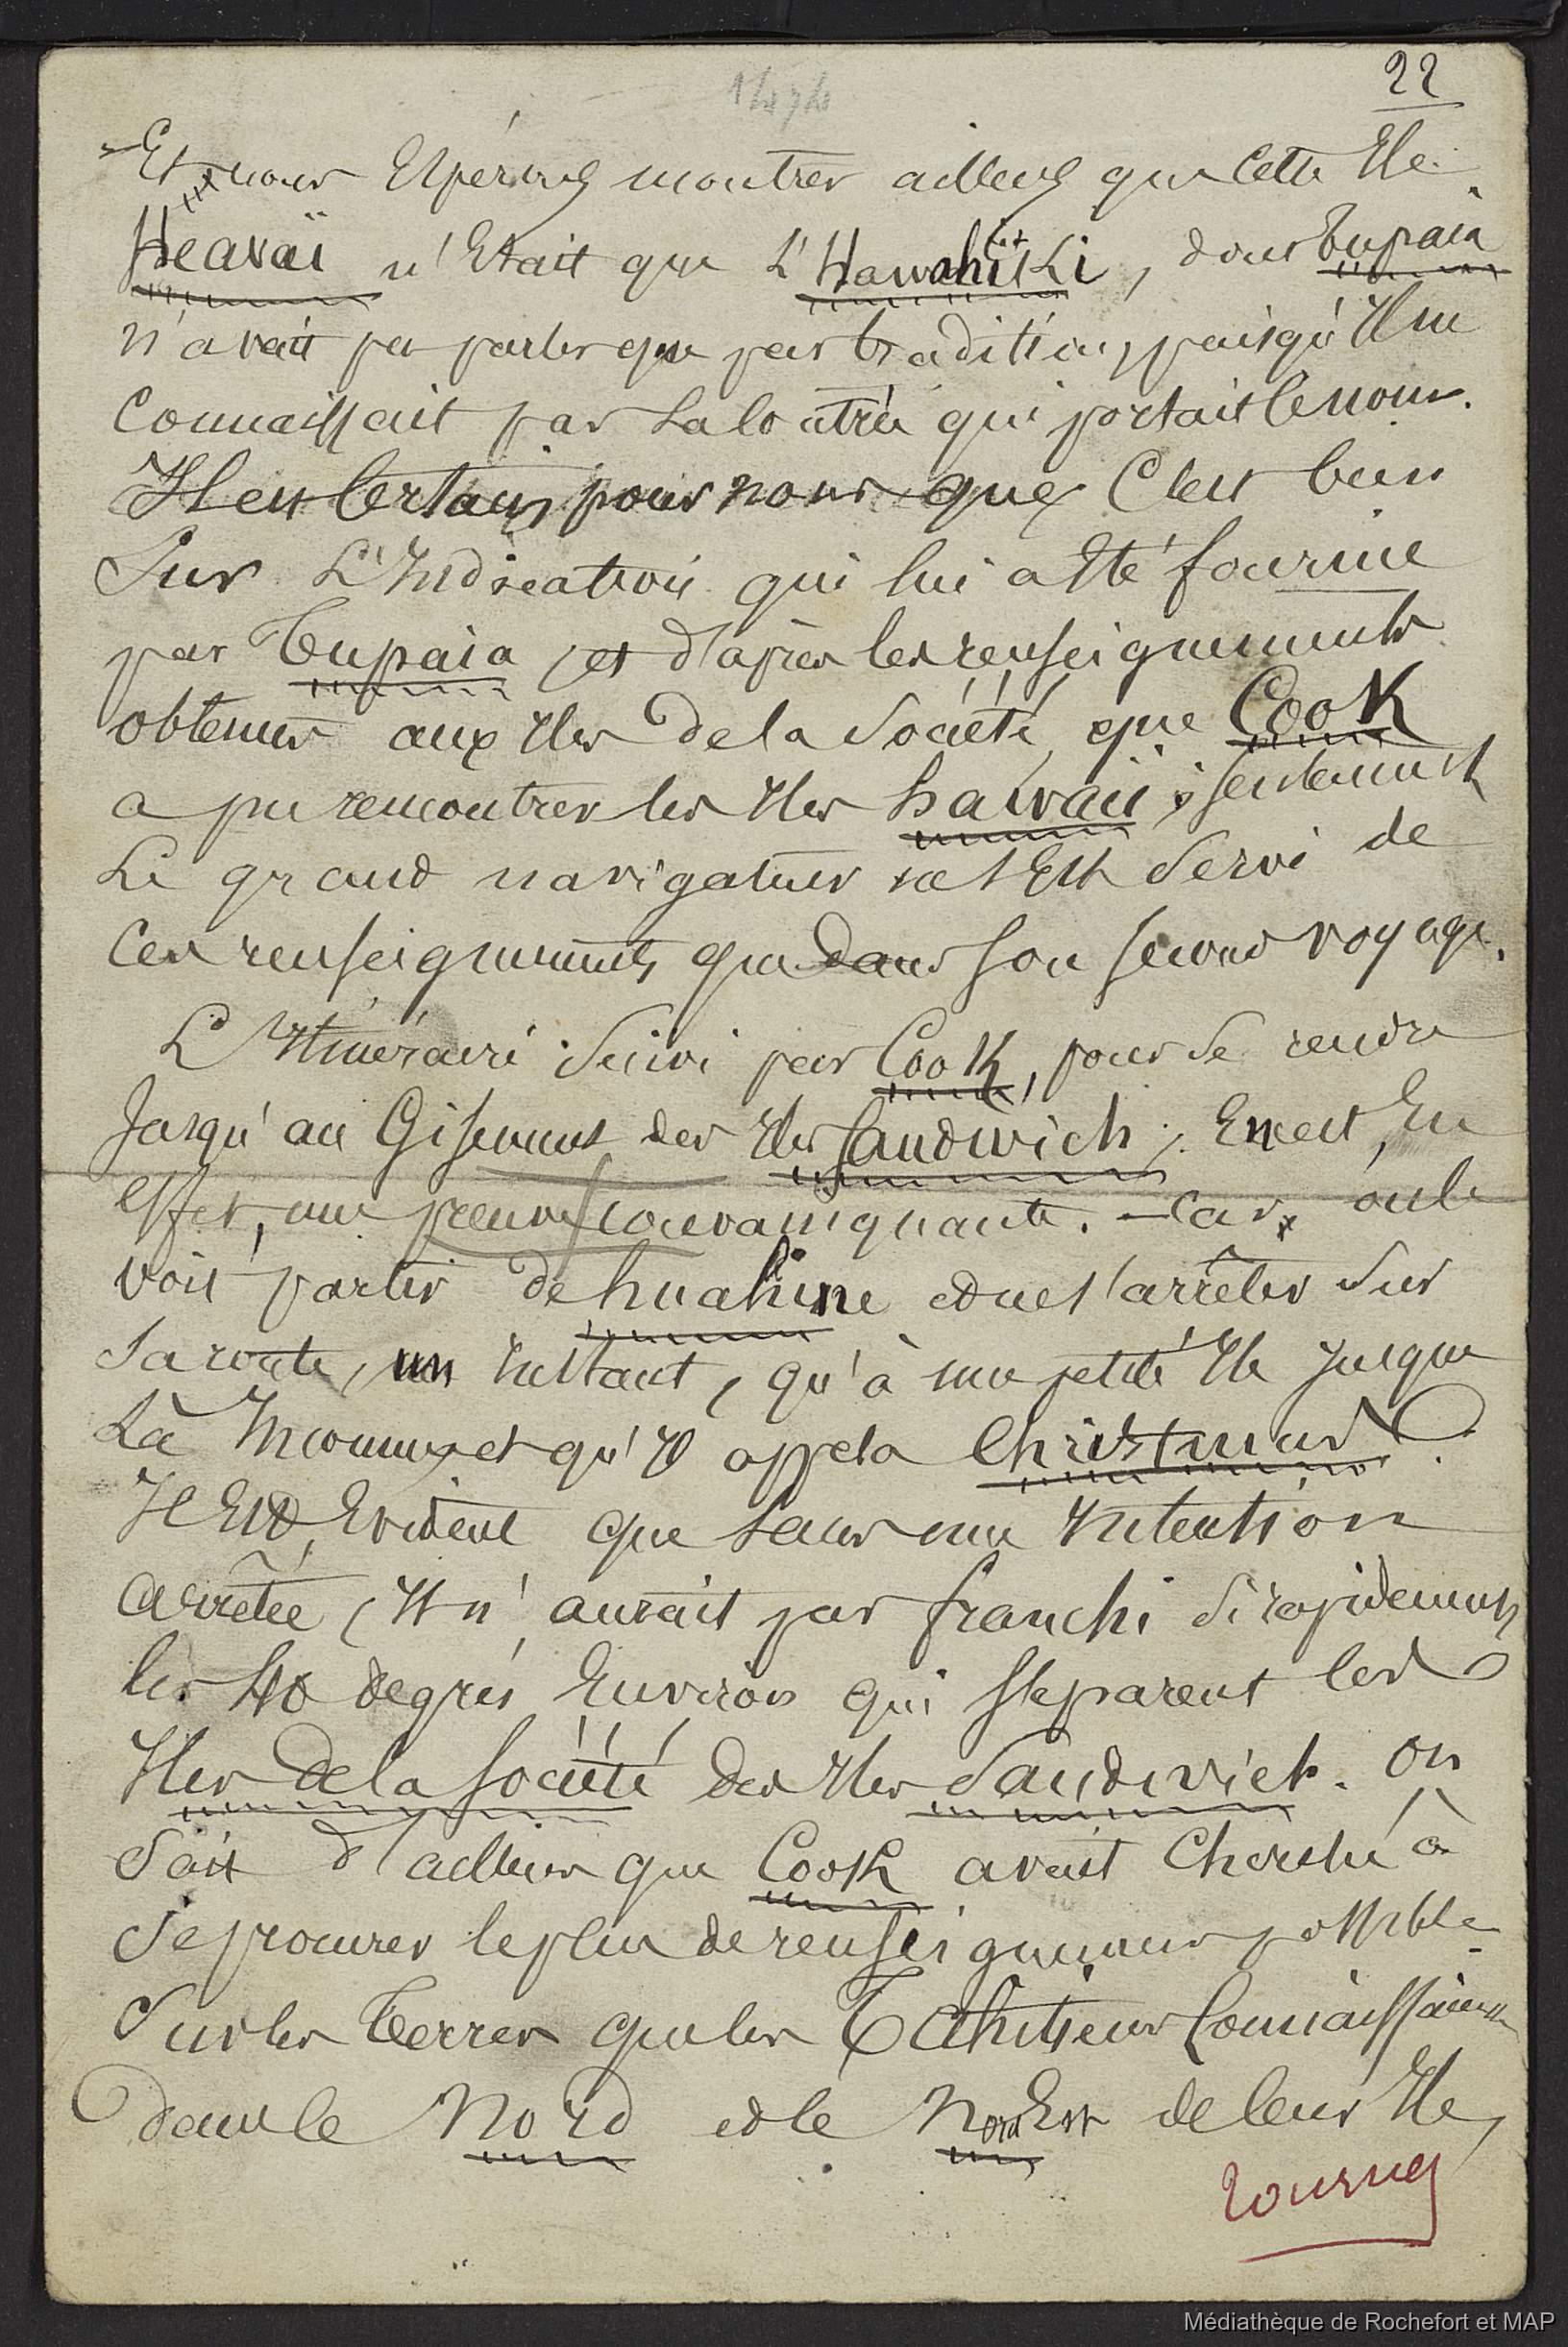 1474
22
Et nous Espérons montrer ailleurs que cette Ile
Heavaï n'Etait que L'Hawahiki, dont Tupaia
n'avait pu parler que par tradition, puisqu'Il ne
Connaissait pas La contrée qui portait ce nom.
Il est Certain pour nous que C'est bien
Sur L'Indication qui lui a Eté fournie
par Tupaia, et d'après les renseignements
obtenus aux Iles de la Société, que Cook
a pu rencontrer les Iles hawaii; seulement
Le grand navigateur ne s'Est Servi de
Ces renseignements que dans son second voyage.
L'Itinéraire Suivi par Cook, pour Se rendre
Jusqu'au Gisement des Iles Sandwich, En est, En
effet, une preuve convainquante. — Car, on le
voit partir de huahine et ne s'arrêter Sur
Sa route, un Instant, qu'à une petite Ile Jusque
Là Inconnue, et qu'Il appela Christmas.
Il Est Evident que sans une Intention
arrêtée, Il n'aurait pas franchi Si rapidement
les 40 degrés Environ qui Séparent les
Iles de la Société des Iles Sandwich. On
Sait d'ailleurs que Cook avait Cherché à
Se procurer le plus de renseignements possible
Sur les Terres que les Tahitiens Connaissaient
dans le Nord et le Nord Est de leur Ile,
tournez
Médiathèque de Rochefort et MAP